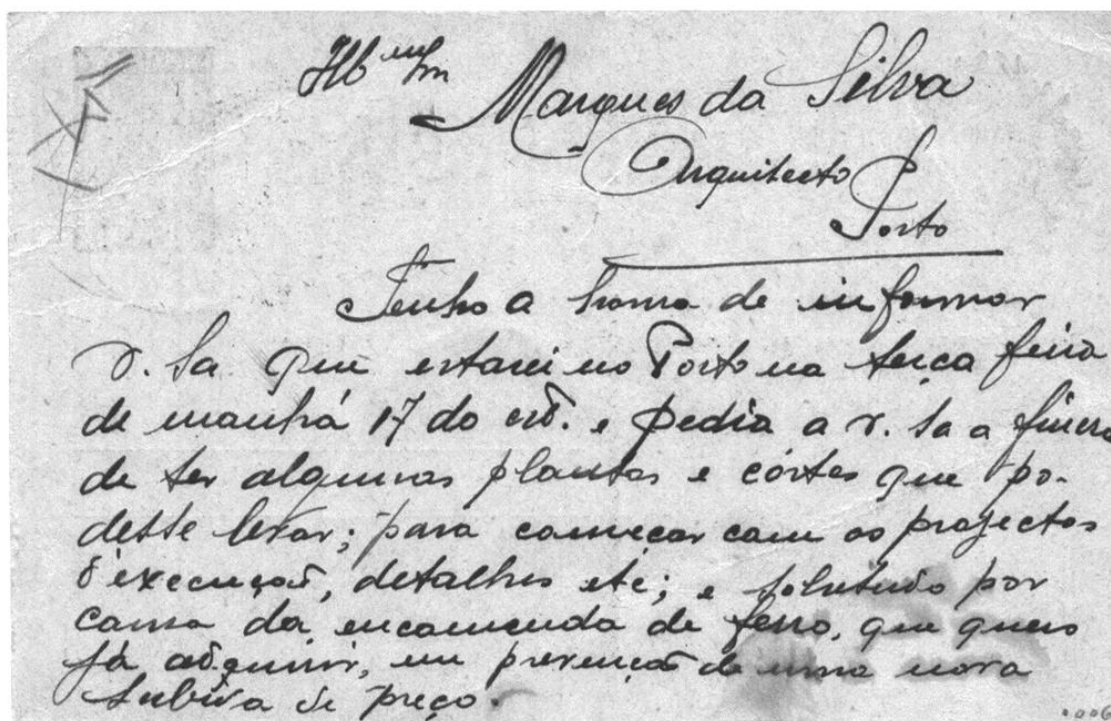 Illmo Snr
Marques da Silva
Arquitecto
Porto
Tenho a honra de informar
V. Sa que estarei no Porto na terça feira
de manhã 17 do crt. e pedia a V. Sa a fineza
de ter algumas plantas e córtes que po-
desse levar; para começar com os projectos
d'execução, detalhes etc; e sobretudo por
causa da encomenda de ferro, que quero
já adquirir, em prevenção de uma nova
subida de preço.